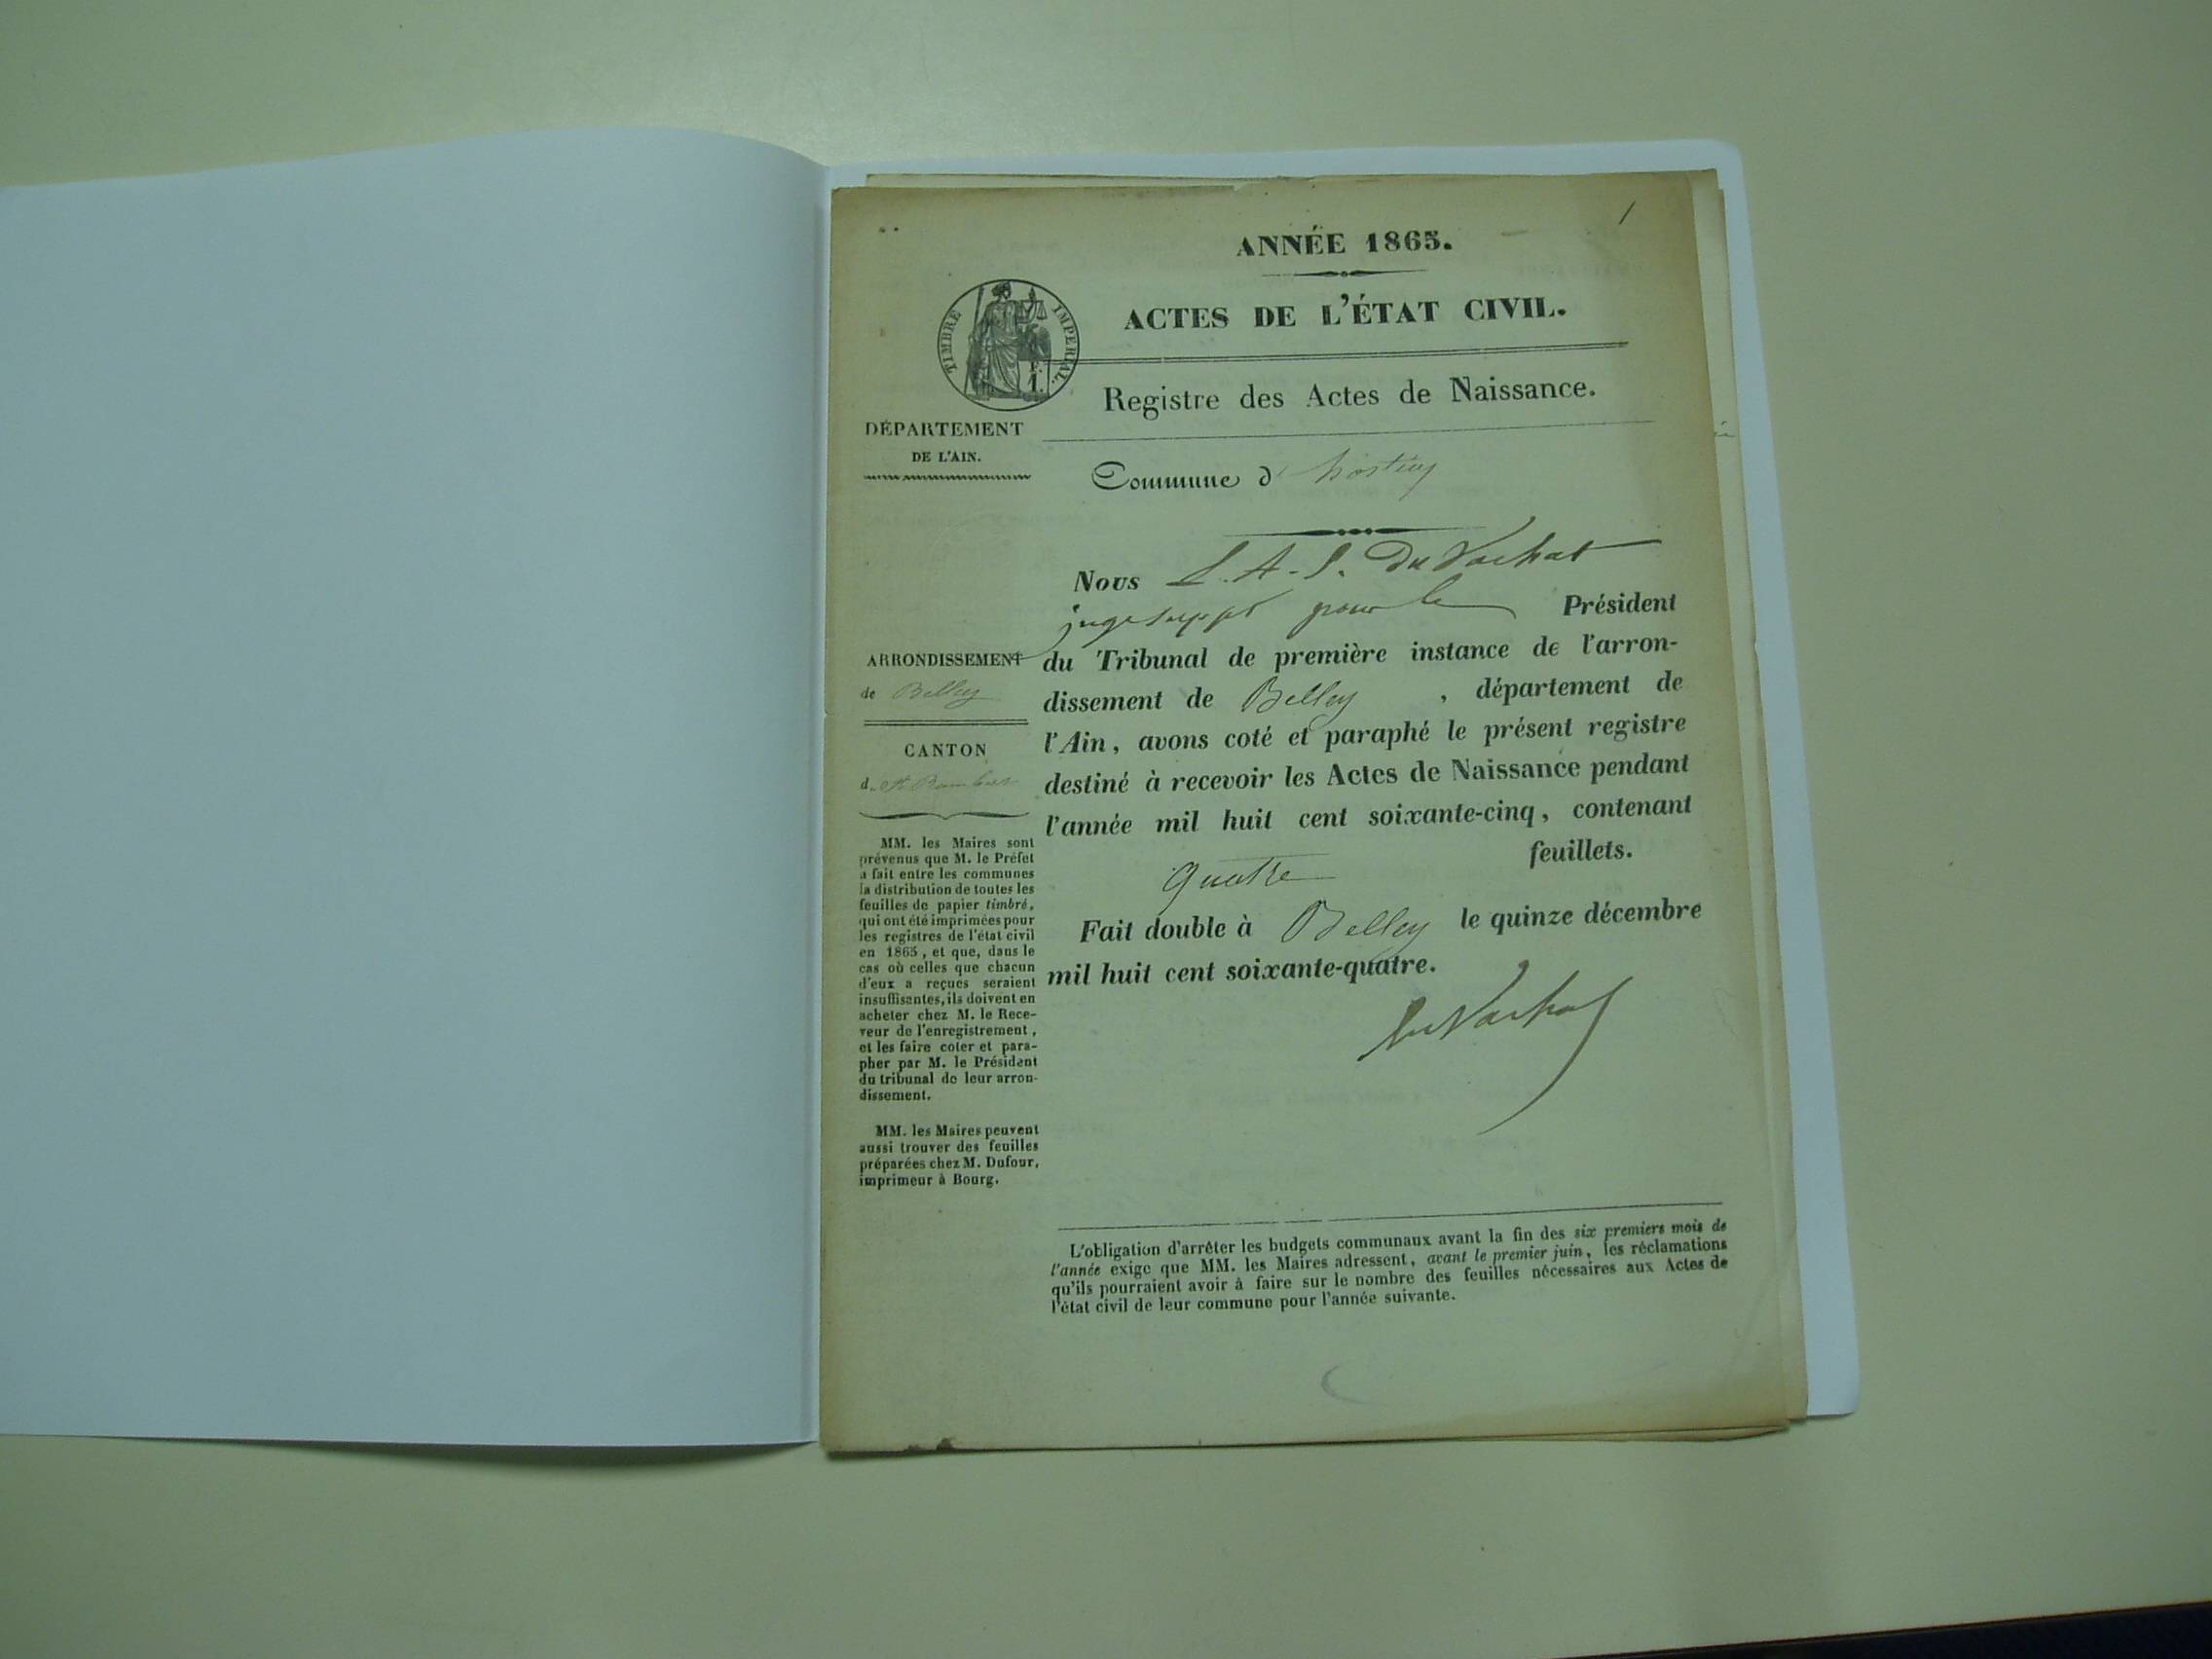 1
ANNÉE 1865.
TIMBRE IMPERIAL.
ACTES DE L'ÉTAT CIVIL.
Registre des Actes de Naissance.
DÉPARTEMENT
DE L'AIN.
Commune d' hostias
ARRONDISSEMENT
de Belley
CANTON
de St Rambert
MM. les Maires sont
prévenus que M. le Préfet
a fait entre les communes
la distribution de toutes les
feuilles de papier timbré,
qui ont été imprimées pour
les registres de l'état civil
en 1865, et que, dans le
cas où celles que chacun
d'eux a reçues seraient
insuffisantes, ils doivent en
acheter chez M. le Rece-
veur de l'enregistrement,
et les faire coter et para-
pher par M. le Président
du tribunal de leur arron-
dissement.
MM. les Maires peuvent
aussi trouver des feuilles
préparées chez M. Dufour,
imprimeur à Bourg.
Nous L. A. J. Du Vachat
juge suppt pour le Président
du Tribunal de première instance de l'arron-
dissement de Belley, département de
l'Ain, avons coté et paraphé le présent registre
destiné à recevoir les Actes de Naissance pendant
l'année mil huit cent soixante-cinq, contenant
quatre feuillets.
Fait double à Belley le quinze décembre
mil huit cent soixante-quatre.
Du Vachat
L'obligation d'arrêter les budgets communaux avant la fin des six premiers mois de
l'année exige que MM. les Maires adressent, avant le premier juin, les réclamations
qu'ils pourraient avoir à faire sur le nombre des feuilles nécessaires aux Actes de
l'état civil de leur commune pour l'année suivante.